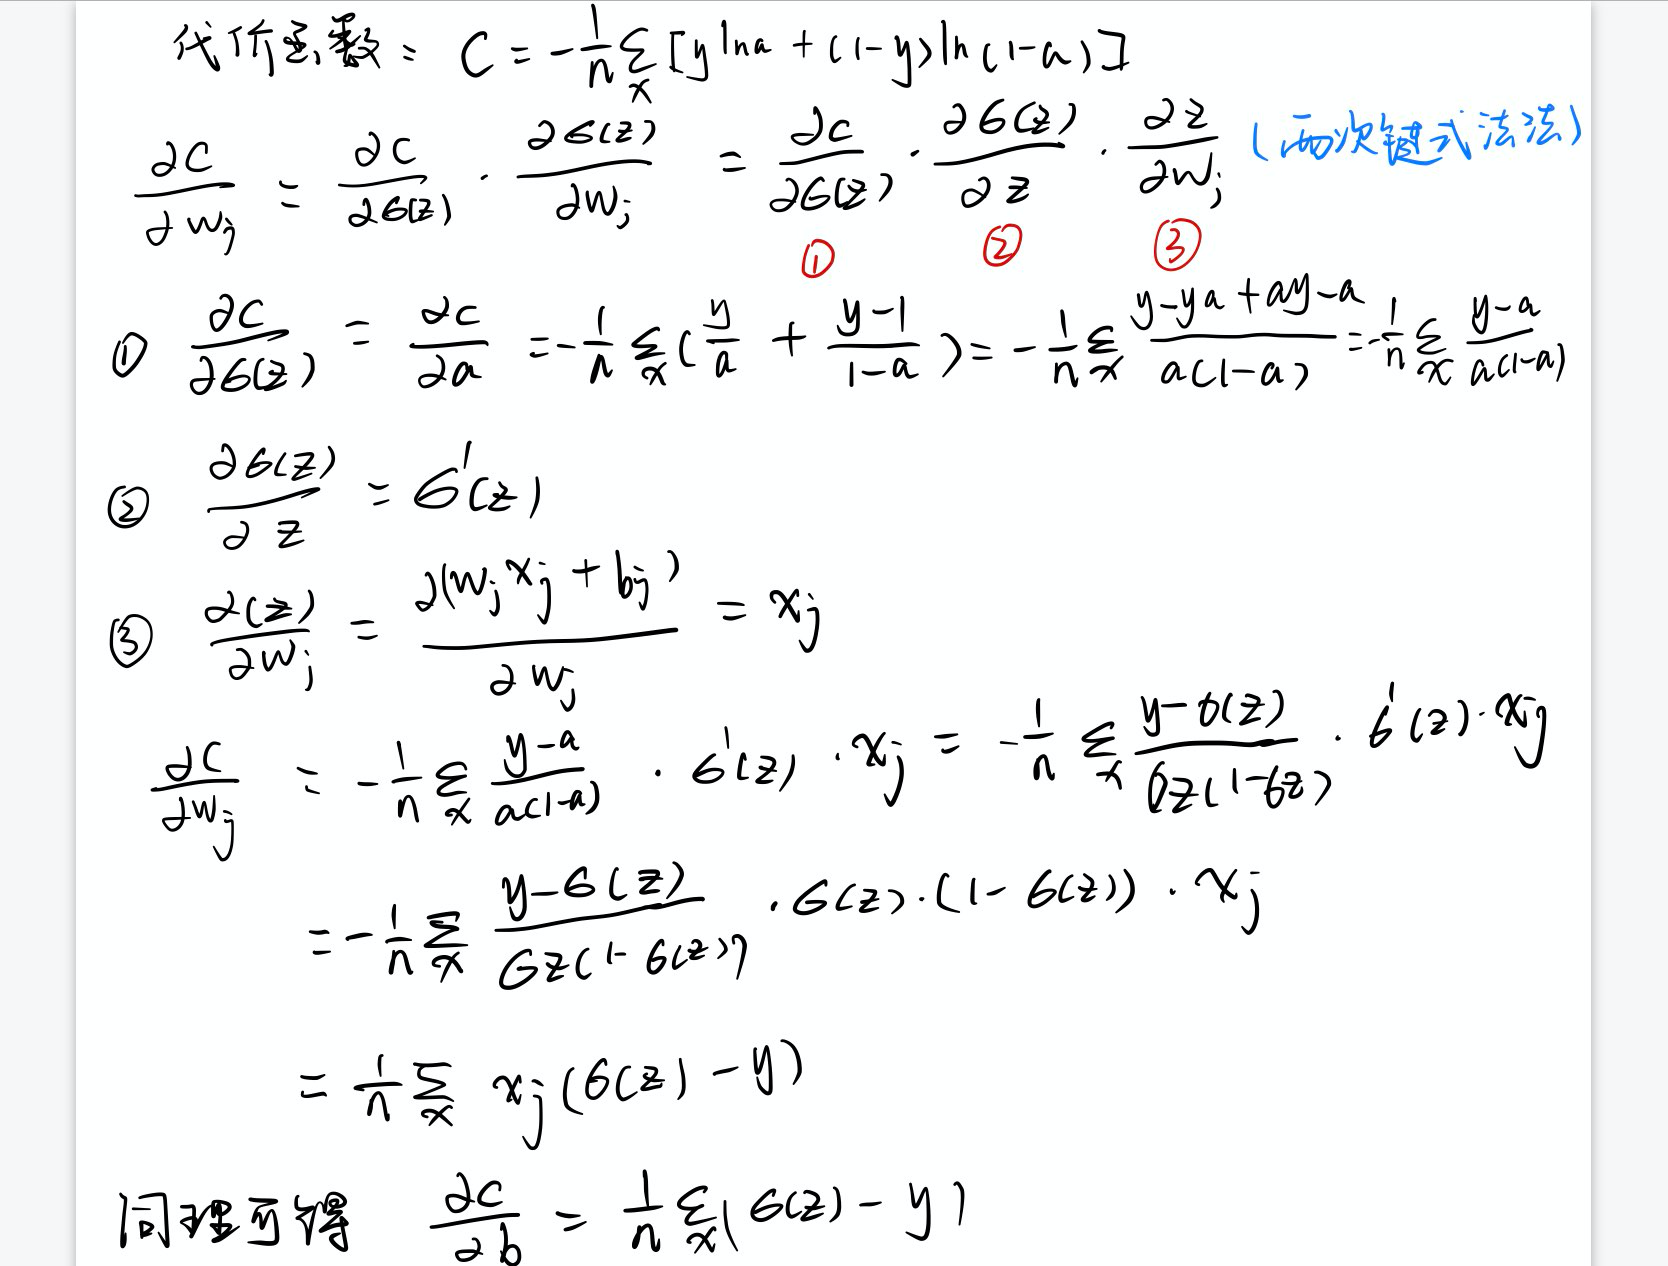 代价函数: C = -1/n Σ_x [y ln a + (1-y) ln(1-a)]
∂C/∂w_j = ∂C/∂σ(z) · ∂σ(z)/∂w_j = ∂C/∂σ(z) · ∂σ(z)/∂z · ∂z/∂w_j (两次链式法法)
① ② ③
① ∂C/∂σ(z) = ∂C/∂a = -1/n Σ_x (y/a + (y-1)/(1-a)) = -1/n Σ_x (y-ya+ay-a)/(a(1-a)) = -1/n Σ_x (y-a)/(a(1-a))
② ∂σ(z)/∂z = σ'(z)
③ ∂(z)/∂w_j = ∂(w_j x_j + b_j)/∂w_j = x_j
∂C/∂w_j = -1/n Σ_x (y-a)/(a(1-a)) · σ'(z) · x_j = -1/n Σ_x (y-σ(z))/(σz(1-σz)) · σ'(z) · x_j
= -1/n Σ_x (y-σ(z))/(σz(1-σ(z))) · σ(z) · (1-σ(z)) · x_j
= 1/n Σ_x x_j (σ(z) - y)
同理可得 ∂C/∂b = 1/n Σ_x (σ(z) - y)